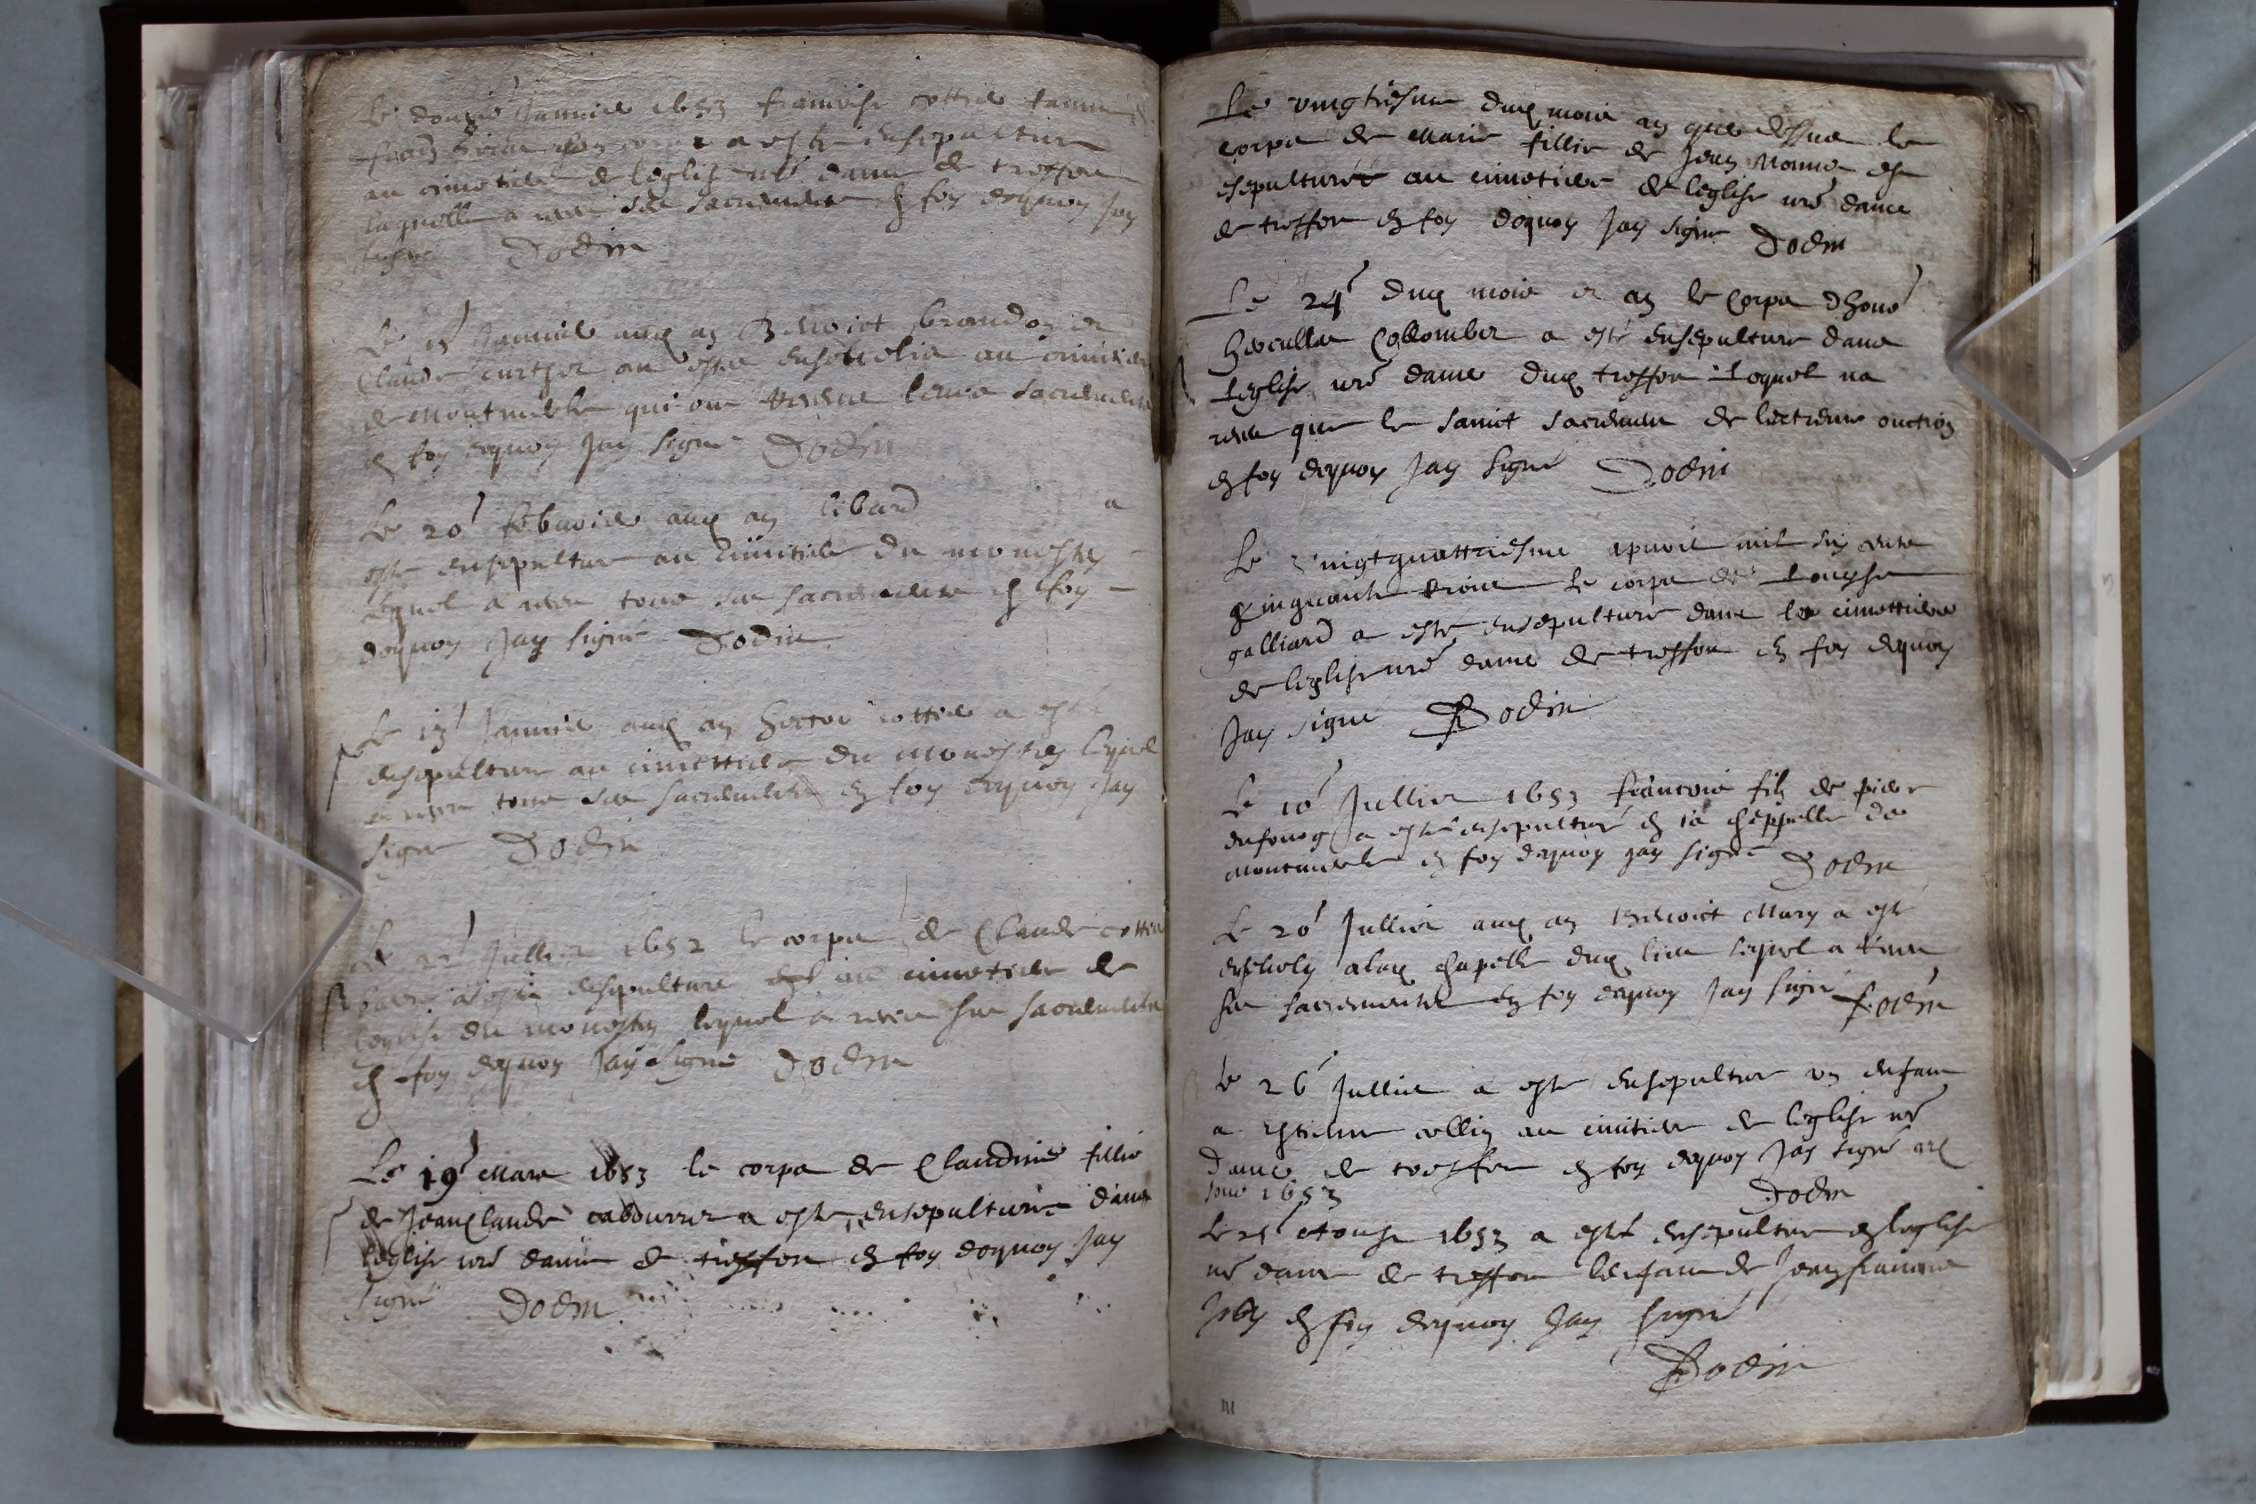 Le douze Janvier 1653 francoise cottier famme
a este ensepulture
au cimetiere de leglise nre dame de treffon
laquelle a receu ses sacrements en foy dequoy Jay
signé Dodin
Le Janvier aux an Benoict brandon et
Claude curtzer au cimitiere
de Montmerle qui ont receu leurs sacrements
en foy dequoy Jay signé Dodin
Le 20e febvrier aux an libard a
este ensepulture au cimitiere du monestey
lequel a receu tous ses sacrements en foy
dequoy Jay signé Dodin
Le 13e Janvier aux an hector cottier a este
ensepulture au cimettiere du monestey lequel
a receu tous ses sacrements en foy dequoy Jay
signe Dodin
Le Jullier 1652 le corps de Claude cottier
a este ensepulture au cimetiere de
leglise du monestey lequel a receu ses sacrements
en foy dequoy Jay signé Dodin
Le 19e Mars 1653 le corps de Claudine fillie
de Jean Claude a este ensepulturée dans
leglise nre dame de treffon en foy dequoy Jay
signé Dodin
Le vingtiesme dux mois an que dessus le
corps de Marie fillie de Jean Monne est
esepulturéé au cimetiere de leglise nre dame
de treffon en foy dequoy Jay signe Dodin
Le 24e dux mois et an le Corps dhone
hercules Collomber a esté ensepulture dans
Leglise nre dame dux treffon Lequel na
receu que le sainct sacrement de lectreme onction
en foy dequoy Jay signé Dodin
Le vingtquattriesme apvril mil six cents
cinquante trois Le corps de Louyse
galliard a este ensepulturé dans le cimettiere
de leglise nre dame de treffon en foy dequoy
Jay signé Dodin
Le 10e Jullier 1653 francois filz de pierre
dufourg a este ensepulturé en la cheppelle de
montmerle en foy dequoy Jay signé Dodin
Le 20e Jullier aux an Benoict Mury a este
alax chapelle dux lieu lequel a receu
ses sacrements en foy dequoy Jay signé Dodin
Le 26e Jullier a este ensepulture un enfant
a estienne collin au cimitiere de leglise nre
Dame de treffon en foy dequoy Jay signé
1653 Dodin
Le 1653 a esté ensepulture en leglise
nre dame de treffon lenfant de Jean francois
en foy dequoy Jay signé
Dodin